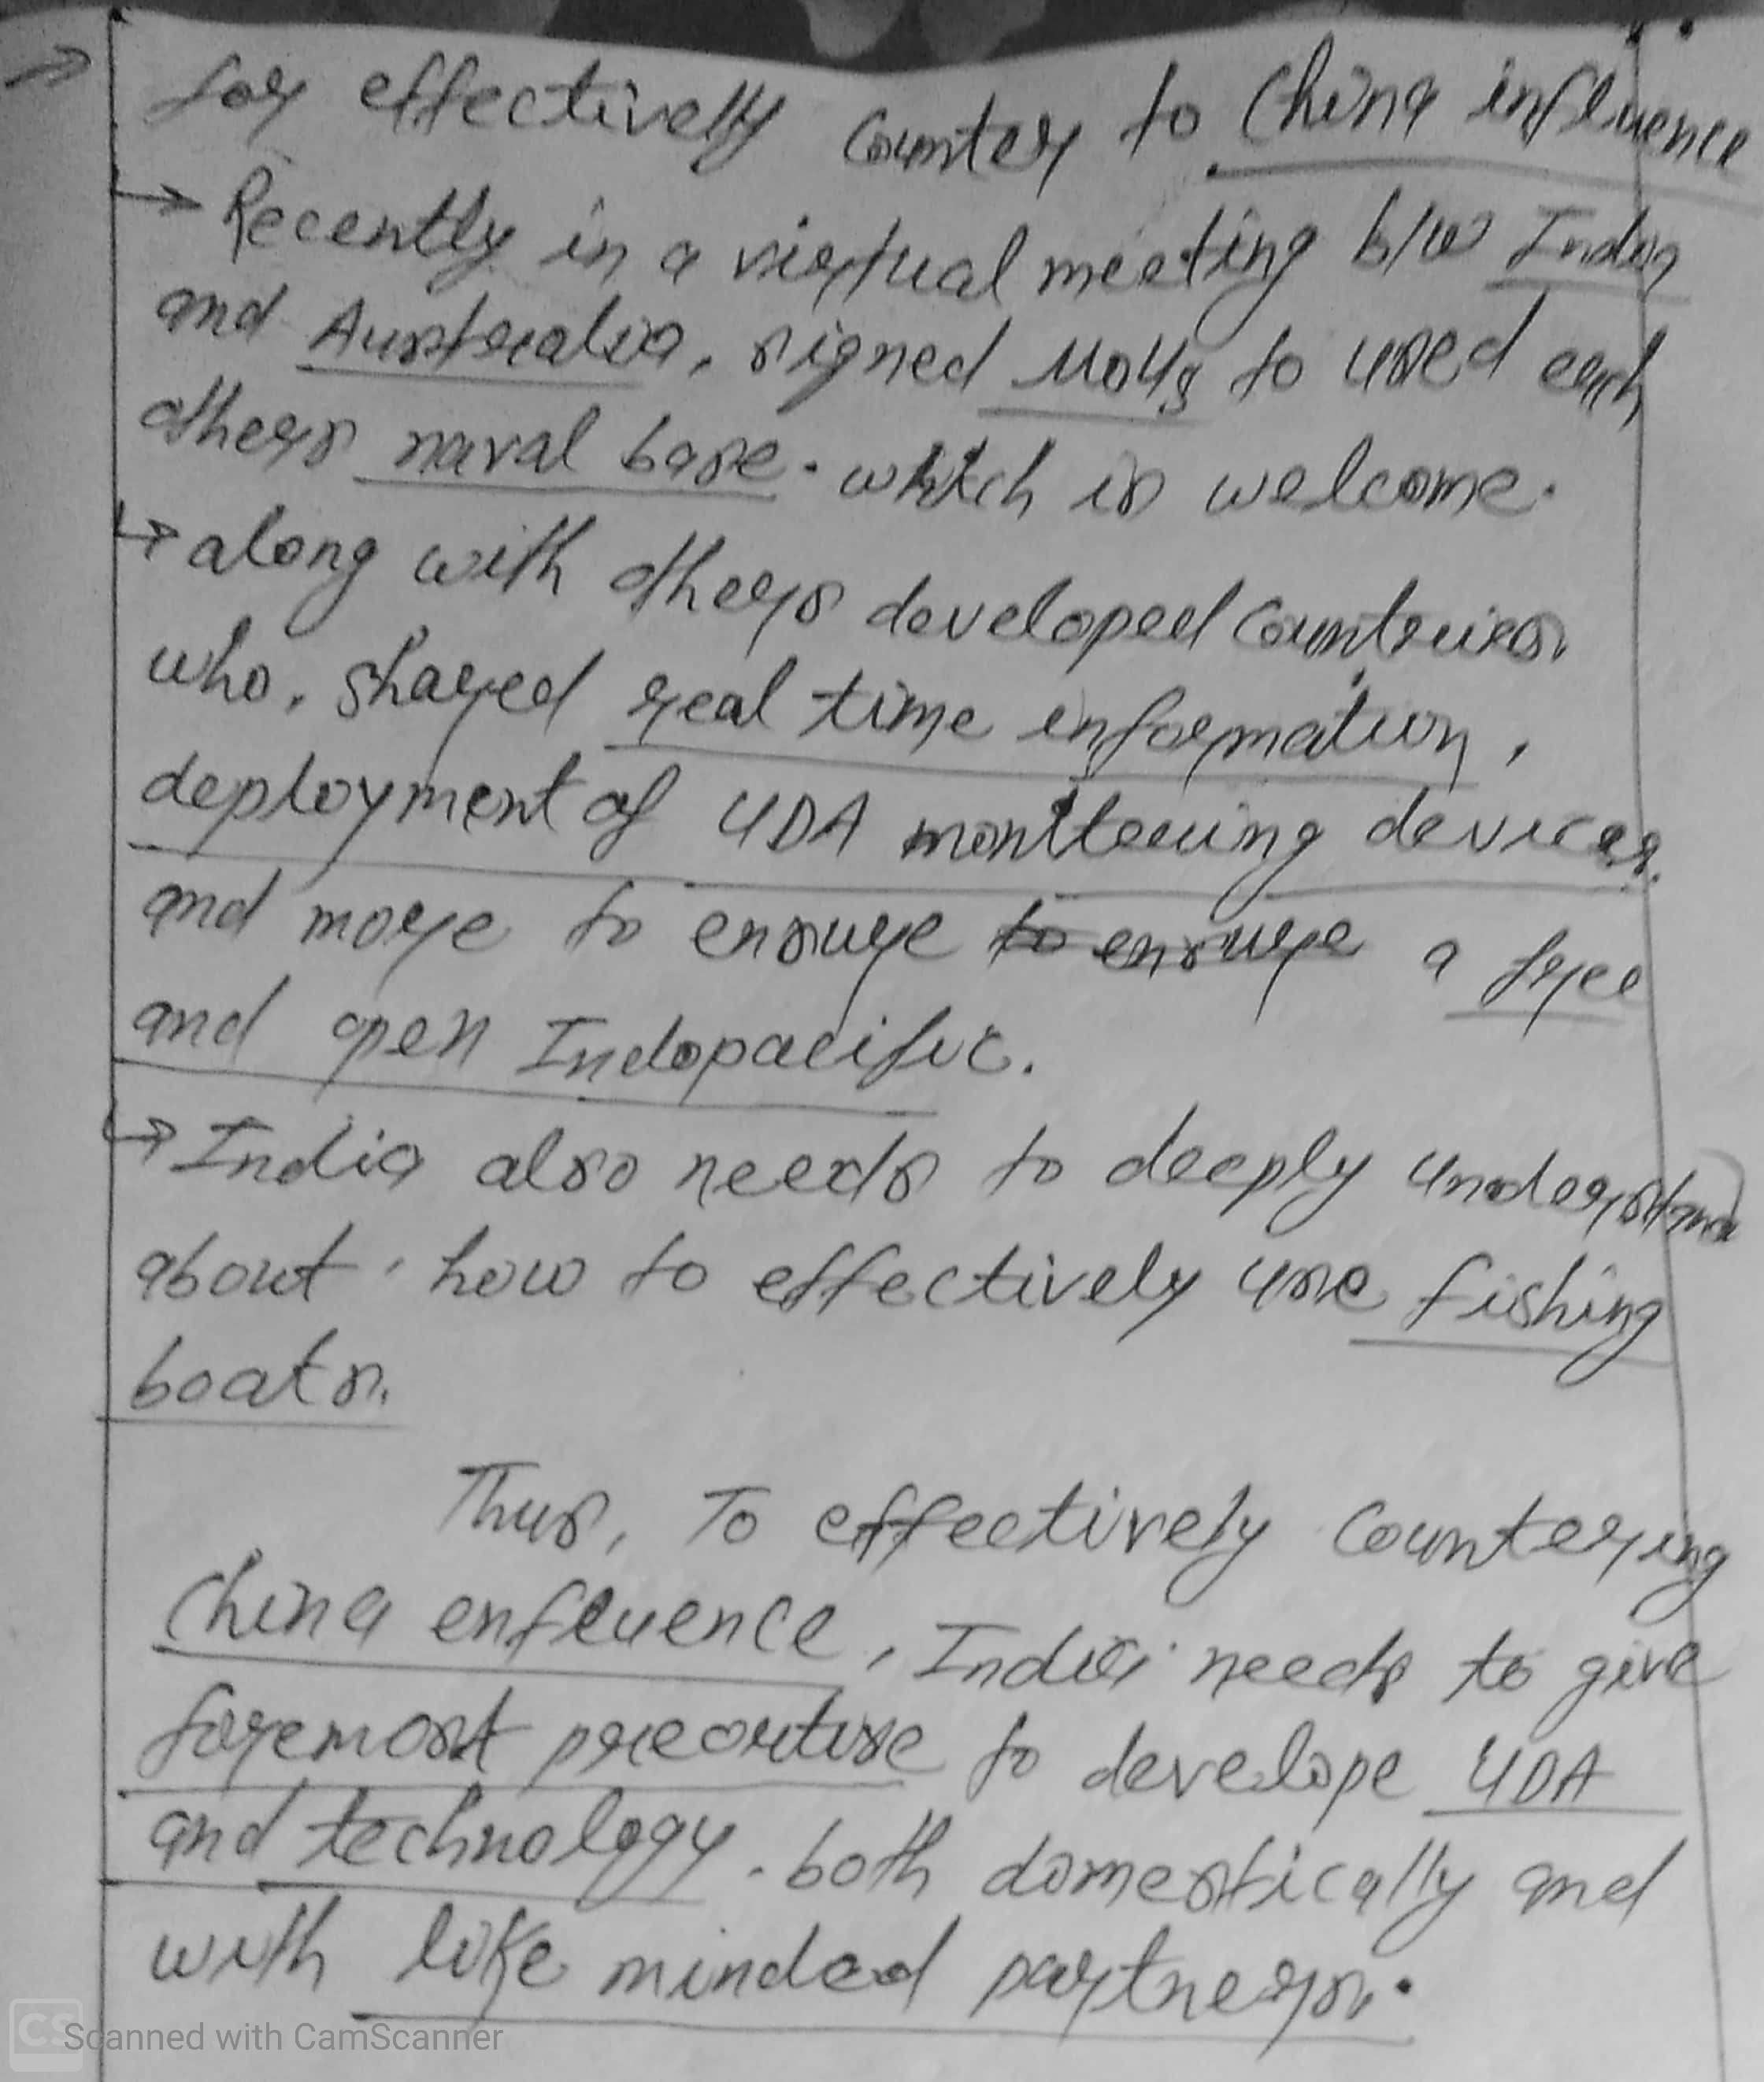 → for effectively counter to China influence
→ Recently in a virtual meeting b/w India
and Australia, signed MoUs to used each
others naval base. which is welcome.
→ along with others developed countries.
who, shared real time information,
deployment of UDA monitoring devices.
and more to ensure to ensure a free
and open Indopacific.
→ India also needs to deeply understand
about, how to effectively use fishing
boats.
Thus, To effectively countering
China enfluence, India needs to give
foremost preoritise to develope UDA
and technology. both domestically and
with like minded partners.
CS Scanned with CamScanner